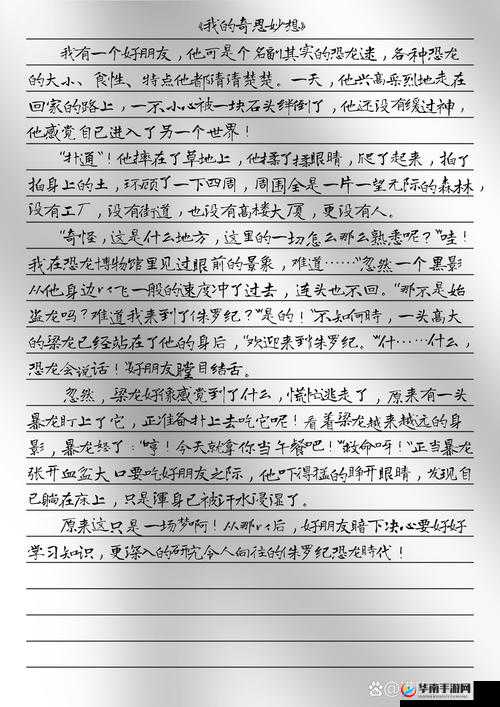 《我的奇思妙想》
我有一个好朋友，他可是个名副其实的恐龙迷，各种恐龙
的大小、食性、特点他都清清楚楚。一天，他兴高采烈地走在
回家的路上，一不小心被一块石头绊倒了，他还没有缓过神，
他感觉自己进入了另一个世界！
“扑通”！他摔在了草地上，他揉了揉眼睛，爬了起来，拍了
拍身上的土，环顾了一下四周，周围全是一片一望无际的森林，
没有工厂，没有街道，也没有高楼大厦，更没有人。
“奇怪，这是什么地方，这里的一切怎么那么熟悉呢？”哇！
我在恐龙博物馆里见过眼前的景象，难道……”忽然一个黑影
从他身边以飞一般的速度冲了过去，连头也不回。“那不是始
盗龙吗？难道我来到了侏罗纪？”“是的！”不知何時，一头高大
的梁龙已经站在了他的身后，“欢迎来到侏罗纪。”“什……什么，
恐龙会说话！”好朋友瞠目结舌。
忽然，梁龙好像感觉到了什么，慌忙逃走了，原来有一头
暴龙盯上了它，正准备扑上去吃它呢！看着梁龙越来越远的身
影，暴龙怒了：“哼！今天就拿你当午餐吧！”“救命呀！”正当暴龙
张开血盆大口要吃好朋友之际，他吓得猛的睁开眼睛，发现自
己躺在床上，只是渾身已被汗水浸湿了。
原来这只是一场梦啊！从那以后，好朋友暗下决心要好好
学习知识，更深入的研究令人向往的侏罗纪恐龙時代！
华南手游网